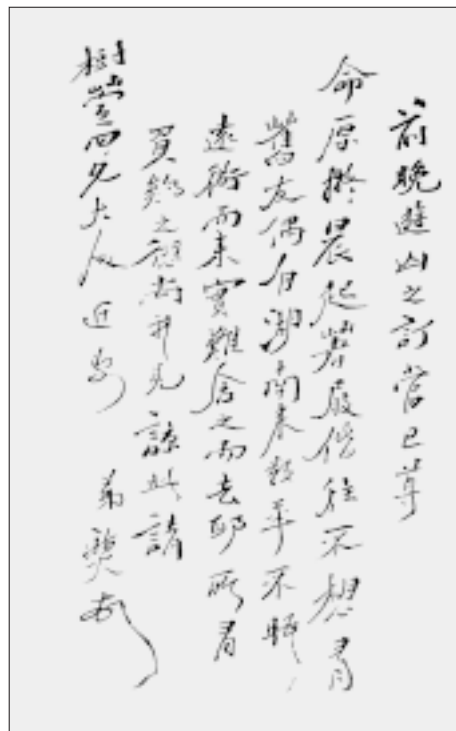 前晚遊山之訂當已尊
命原擬晨起著屐偕往不想有
舊友偶自湖南來數年不晤
遠衛而來實難舍之而去耶所有
負約之愆尚祈見諒此請
樹萱四兄大人近安 弟奭頓